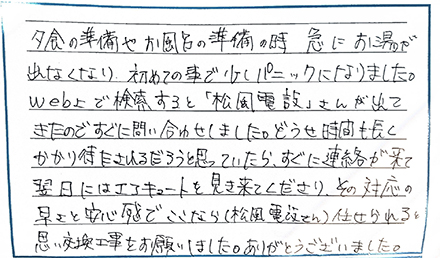 夕食の準備やお風呂の準備の時 急にお湯が
出なくなり、初めての事で少しパニックになりました。
web上で検索すると「松風電設」さんが出て
きたのですぐに問い合わせしました。どうせ時間も長く
かかり待たされるだろうと思っていたら、すぐに連絡が来て
翌日にはエコキュートを見き来てくださり、その対応の
早さと安心感でここなら(松風電設さん)仕せられると
思い交換工事をお願いしました。ありがとうございました。